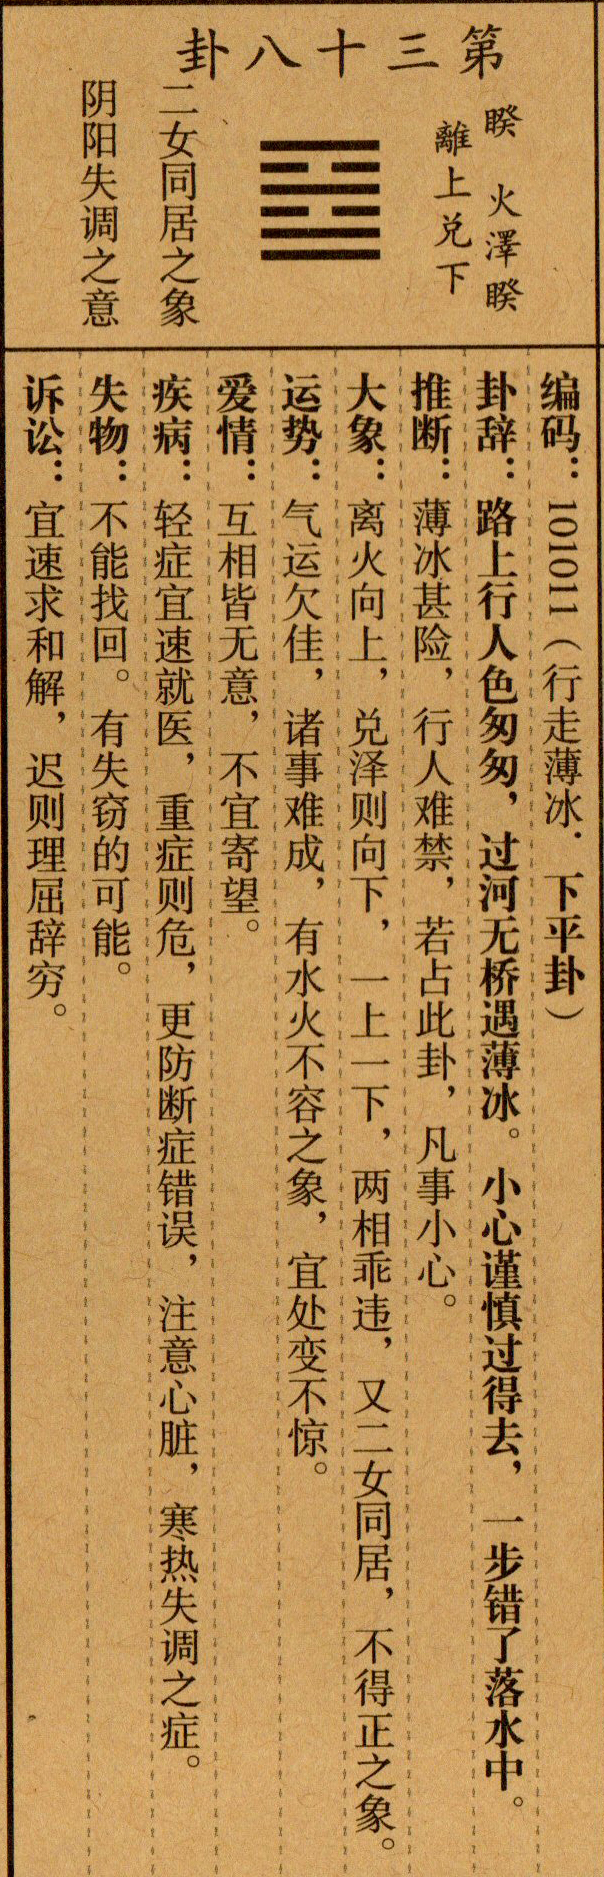 第三十八卦
睽 火澤睽
離上兑下
二女同居之象
阴阳失调之意
编码：101011（行走薄冰．下平卦）
卦辞：路上行人色匆匆，过河无桥遇薄冰。小心谨慎过得去，一步错了落水中。
推断：薄冰甚险，行人难禁，若占此卦，凡事小心。
大象：离火向上，兑泽则向下，一上一下，两相乖违，又二女同居，不得正之象。
运势：气运欠佳，诸事难成，有水火不容之象，宜处变不惊。
爱情：互相皆无意，不宜寄望。
疾病：轻症宜速就医，重症则危，更防断症错误，注意心脏，寒热失调之症。
失物：不能找回。有失窃的可能。
诉讼：宜速求和解，迟则理屈辞穷。